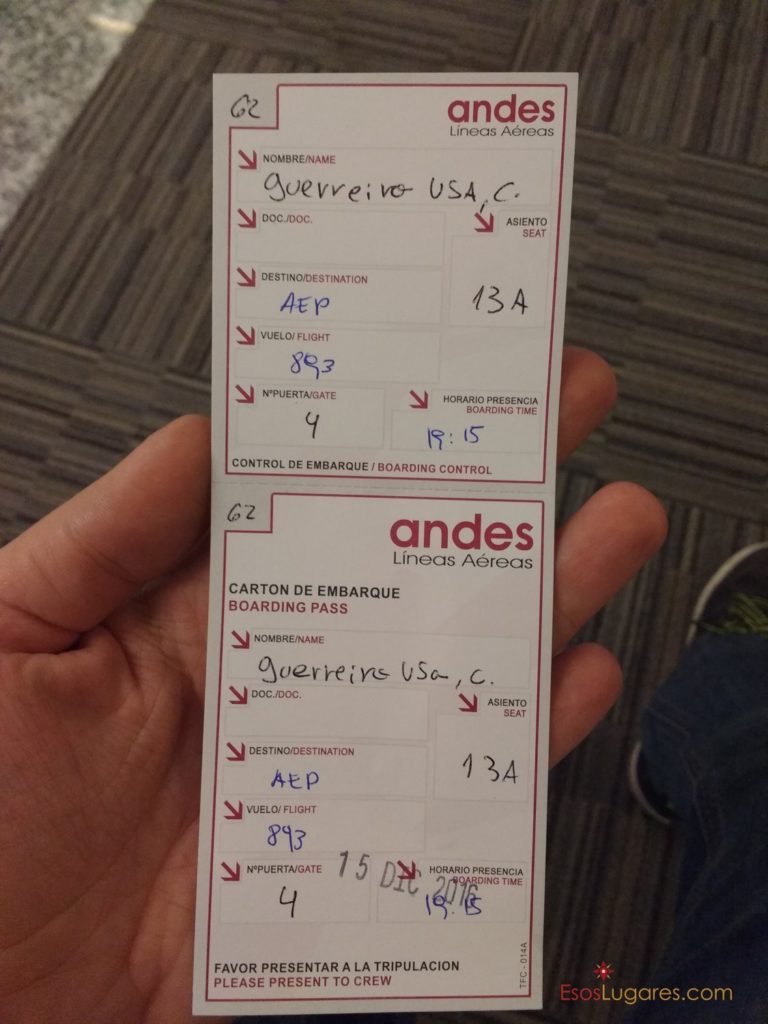 62
andes
Líneas Aéreas
NOMBRE/NAME
guerreiro USA, C.
DOC./DOC.
ASIENTO
SEAT
13A
DESTINO/DESTINATION
AEP
VUELO/ FLIGHT
893
NºPUERTA/GATE
4
HORARIO PRESENCIA
BOARDING TIME
19:15
CONTROL DE EMBARQUE / BOARDING CONTROL
62
andes
Líneas Aéreas
CARTON DE EMBARQUE
BOARDING PASS
NOMBRE/NAME
guerreiro USa, C.
DOC./DOC.
ASIENTO
SEAT
13A
DESTINO/DESTINATION
AEP
VUELO/ FLIGHT
893
NºPUERTA/GATE
4
15 DIC 2016
HORARIO PRESENCIA
BOARDING TIME
19:15
FAVOR PRESENTAR A LA TRIPULACION
PLEASE PRESENT TO CREW
TFC - 014A
EsosLugares.com